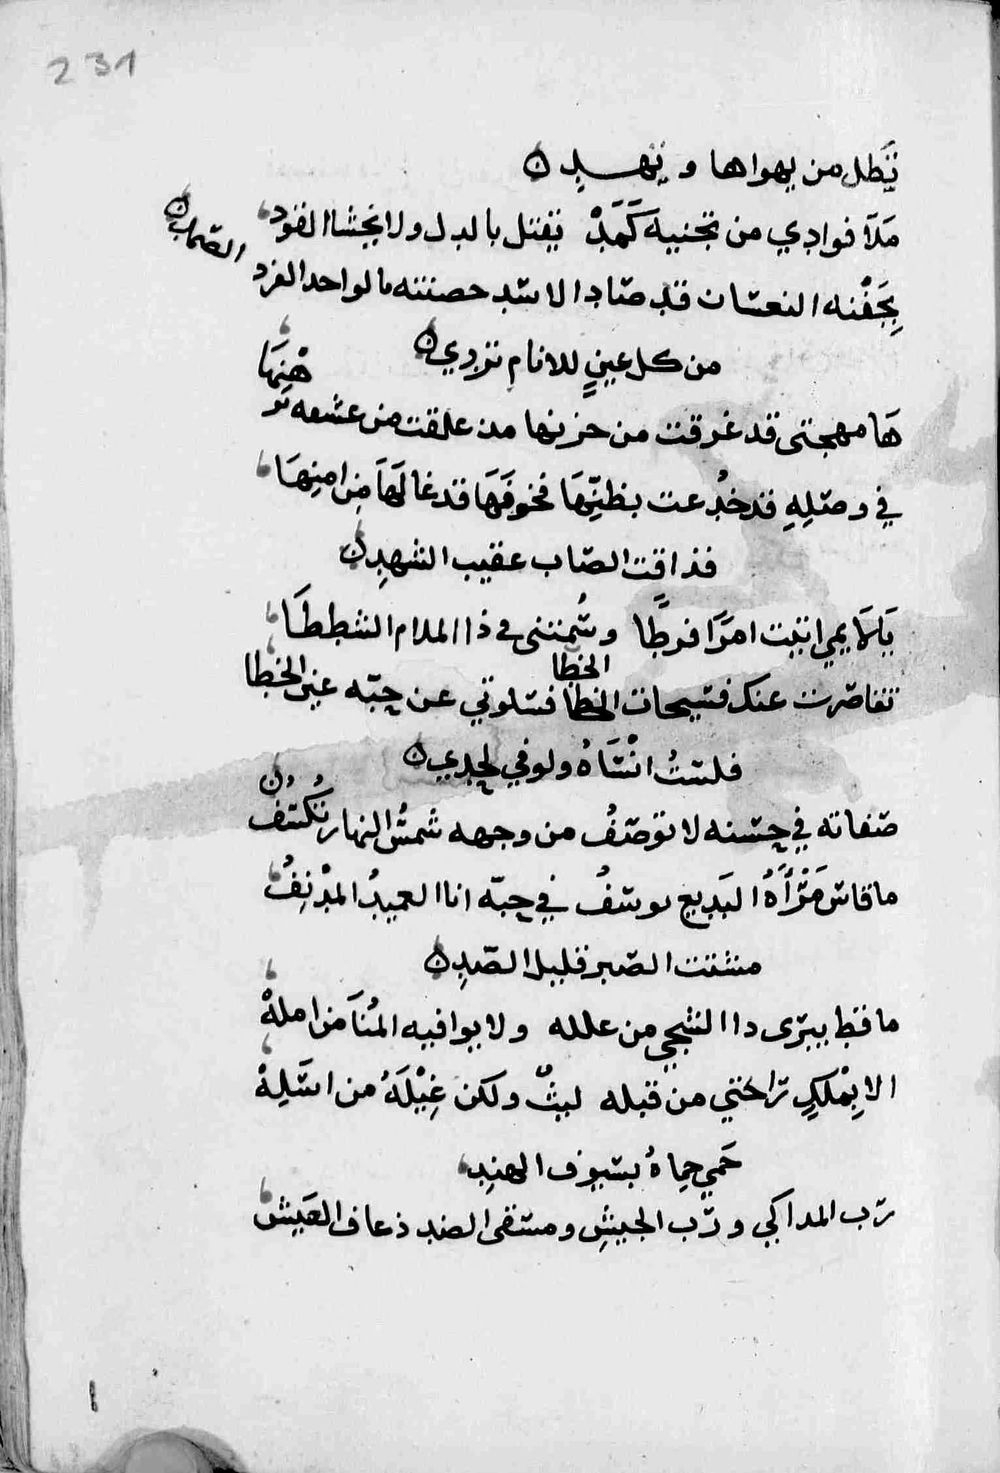 231
يُطل من يهواها و يهدِ ن
مَلَا فوادي من تجنيه كَمَدْ يفتل بالدل ولا يخشا القود
الصّحابِ ن
بِجَفْنه النعسان قد صاد الاسد حصنته بالواحد الفرد
من كل عينٍ للانامِ تردي ن
هَا مهجتى قد غرقت من حزنها مذ علقت من عشقه توهْنِهَا
في وصلِهِ قد خُدعت بظنِّهَا فخوفَهَا قد غالَهَا مِن امنِهَا
فذاقت الصّاب عقيب الشهدِ ن
يَا لَايمي اتيت امرًا فرطًا وسُمتنى فى ذا الملام الشططَا
الخطا
تقاصرت عنك فسيحات الخطا فسلوتي عن حبّه عين الخطا
فلستُ انْسَاهُ ولو في لحدي ن
صفاته في حسنه لا توصَفُ من وجهه شمسُ النهار تُكْسَفُ ن
ما قاسَ مَرْأَهُ البَديع يوسفُ في حبّه انا العميدُ المدْنِفُ
مشتت الصبر قليل الصّدِ ن
ما قط يبرى دا الشجي من علله ولا يوافيه المُنَا من املهْ
الا بِمْلكٍ راحتي من قبله ليثٌ ولكن غِيْلَهُ من اسَلِهْ
حَمي حِماهُ بسيوف الهندِ
ربّ المداكي وربّ الجيشِ ومسقى الضد ذعاف العَيشْ